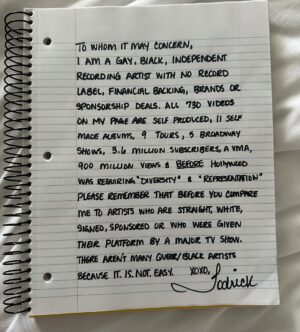 TO WHOM IT MAY CONCERN,
I AM A GAY, BLACK, INDEPENDENT
RECORDING ARTIST WITH NO RECORD
LABEL, FINANCIAL BACKING, BRANDS OR
SPONSORSHIP DEALS. ALL 730 VIDEOS
ON MY PAGE ARE SELF PRODUCED, 11 SELF
MADE ALBUMS, 9 TOURS, 5 BROADWAY
SHOWS, 3.6 MILLION SUBSCRIBERS, A VMA,
900 MILLION VIEWS & BEFORE HOLLYWOOD
WAS REQUIRING "DIVERSITY" & "REPRESENTATION"
PLEASE REMEMBER THAT BEFORE YOU COMPARE
ME TO ARTISTS WHO ARE STRAIGHT, WHITE,
SIGNED, SPONSORED OR WHO WERE GIVEN
THEIR PLATFORM BY A MAJOR TV SHOW.
THERE AREN'T MANY QUEER/BLACK ARTISTS
BECAUSE IT. IS. NOT. EASY. XOXO,
Todrick